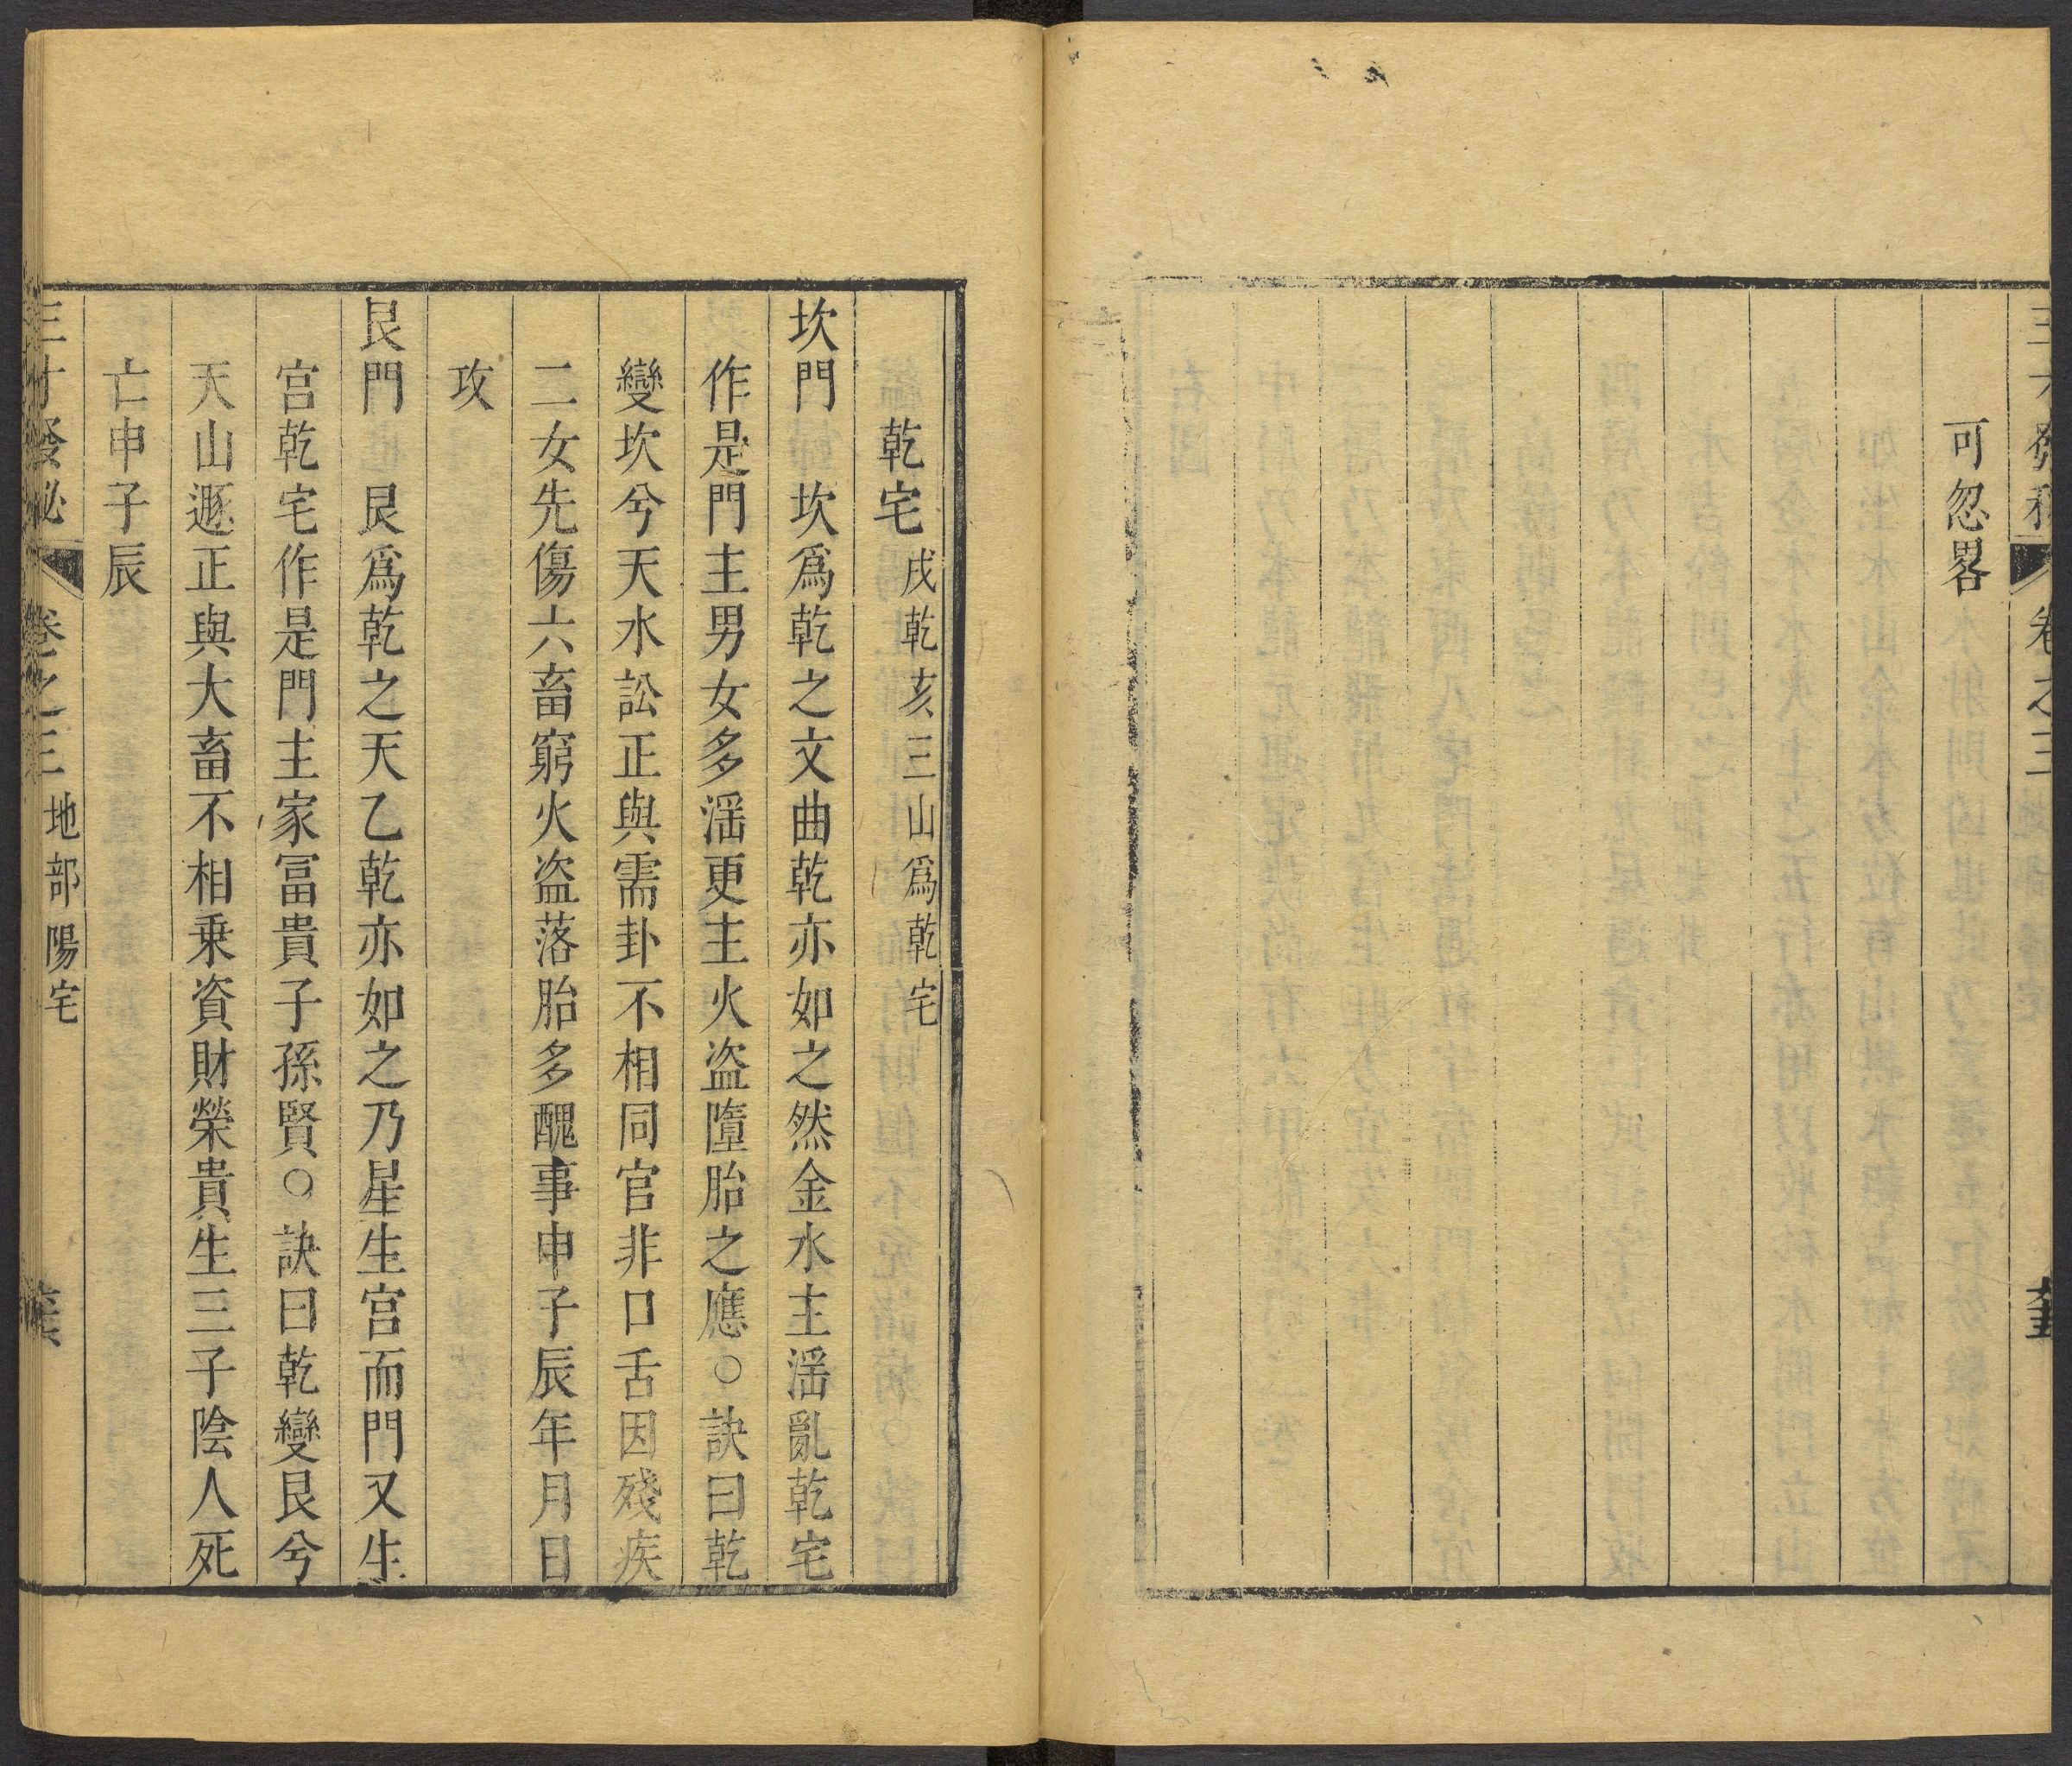 可忽畧
乾宅戌乾亥三山爲乾宅
坎門　坎爲乾之文曲乾亦如之然金水主滛亂乾宅
作是門主男女多滛更主火盗墮胎之應○訣曰乾
變坎兮天水訟正與需卦不相同官非口舌因殘疾
二女先傷六畜窮火盗落胎多醜事申子辰年月日
攻
艮門　艮爲乾之天乙乾亦如之乃星生宫而門又生
宫乾宅作是門主家冨貴子孫賢○訣曰乾變艮兮
天山遯正與大畜不相乗資財榮貴生三子陰人死
亡申子辰
三才發秘　卷之三　地部陽宅